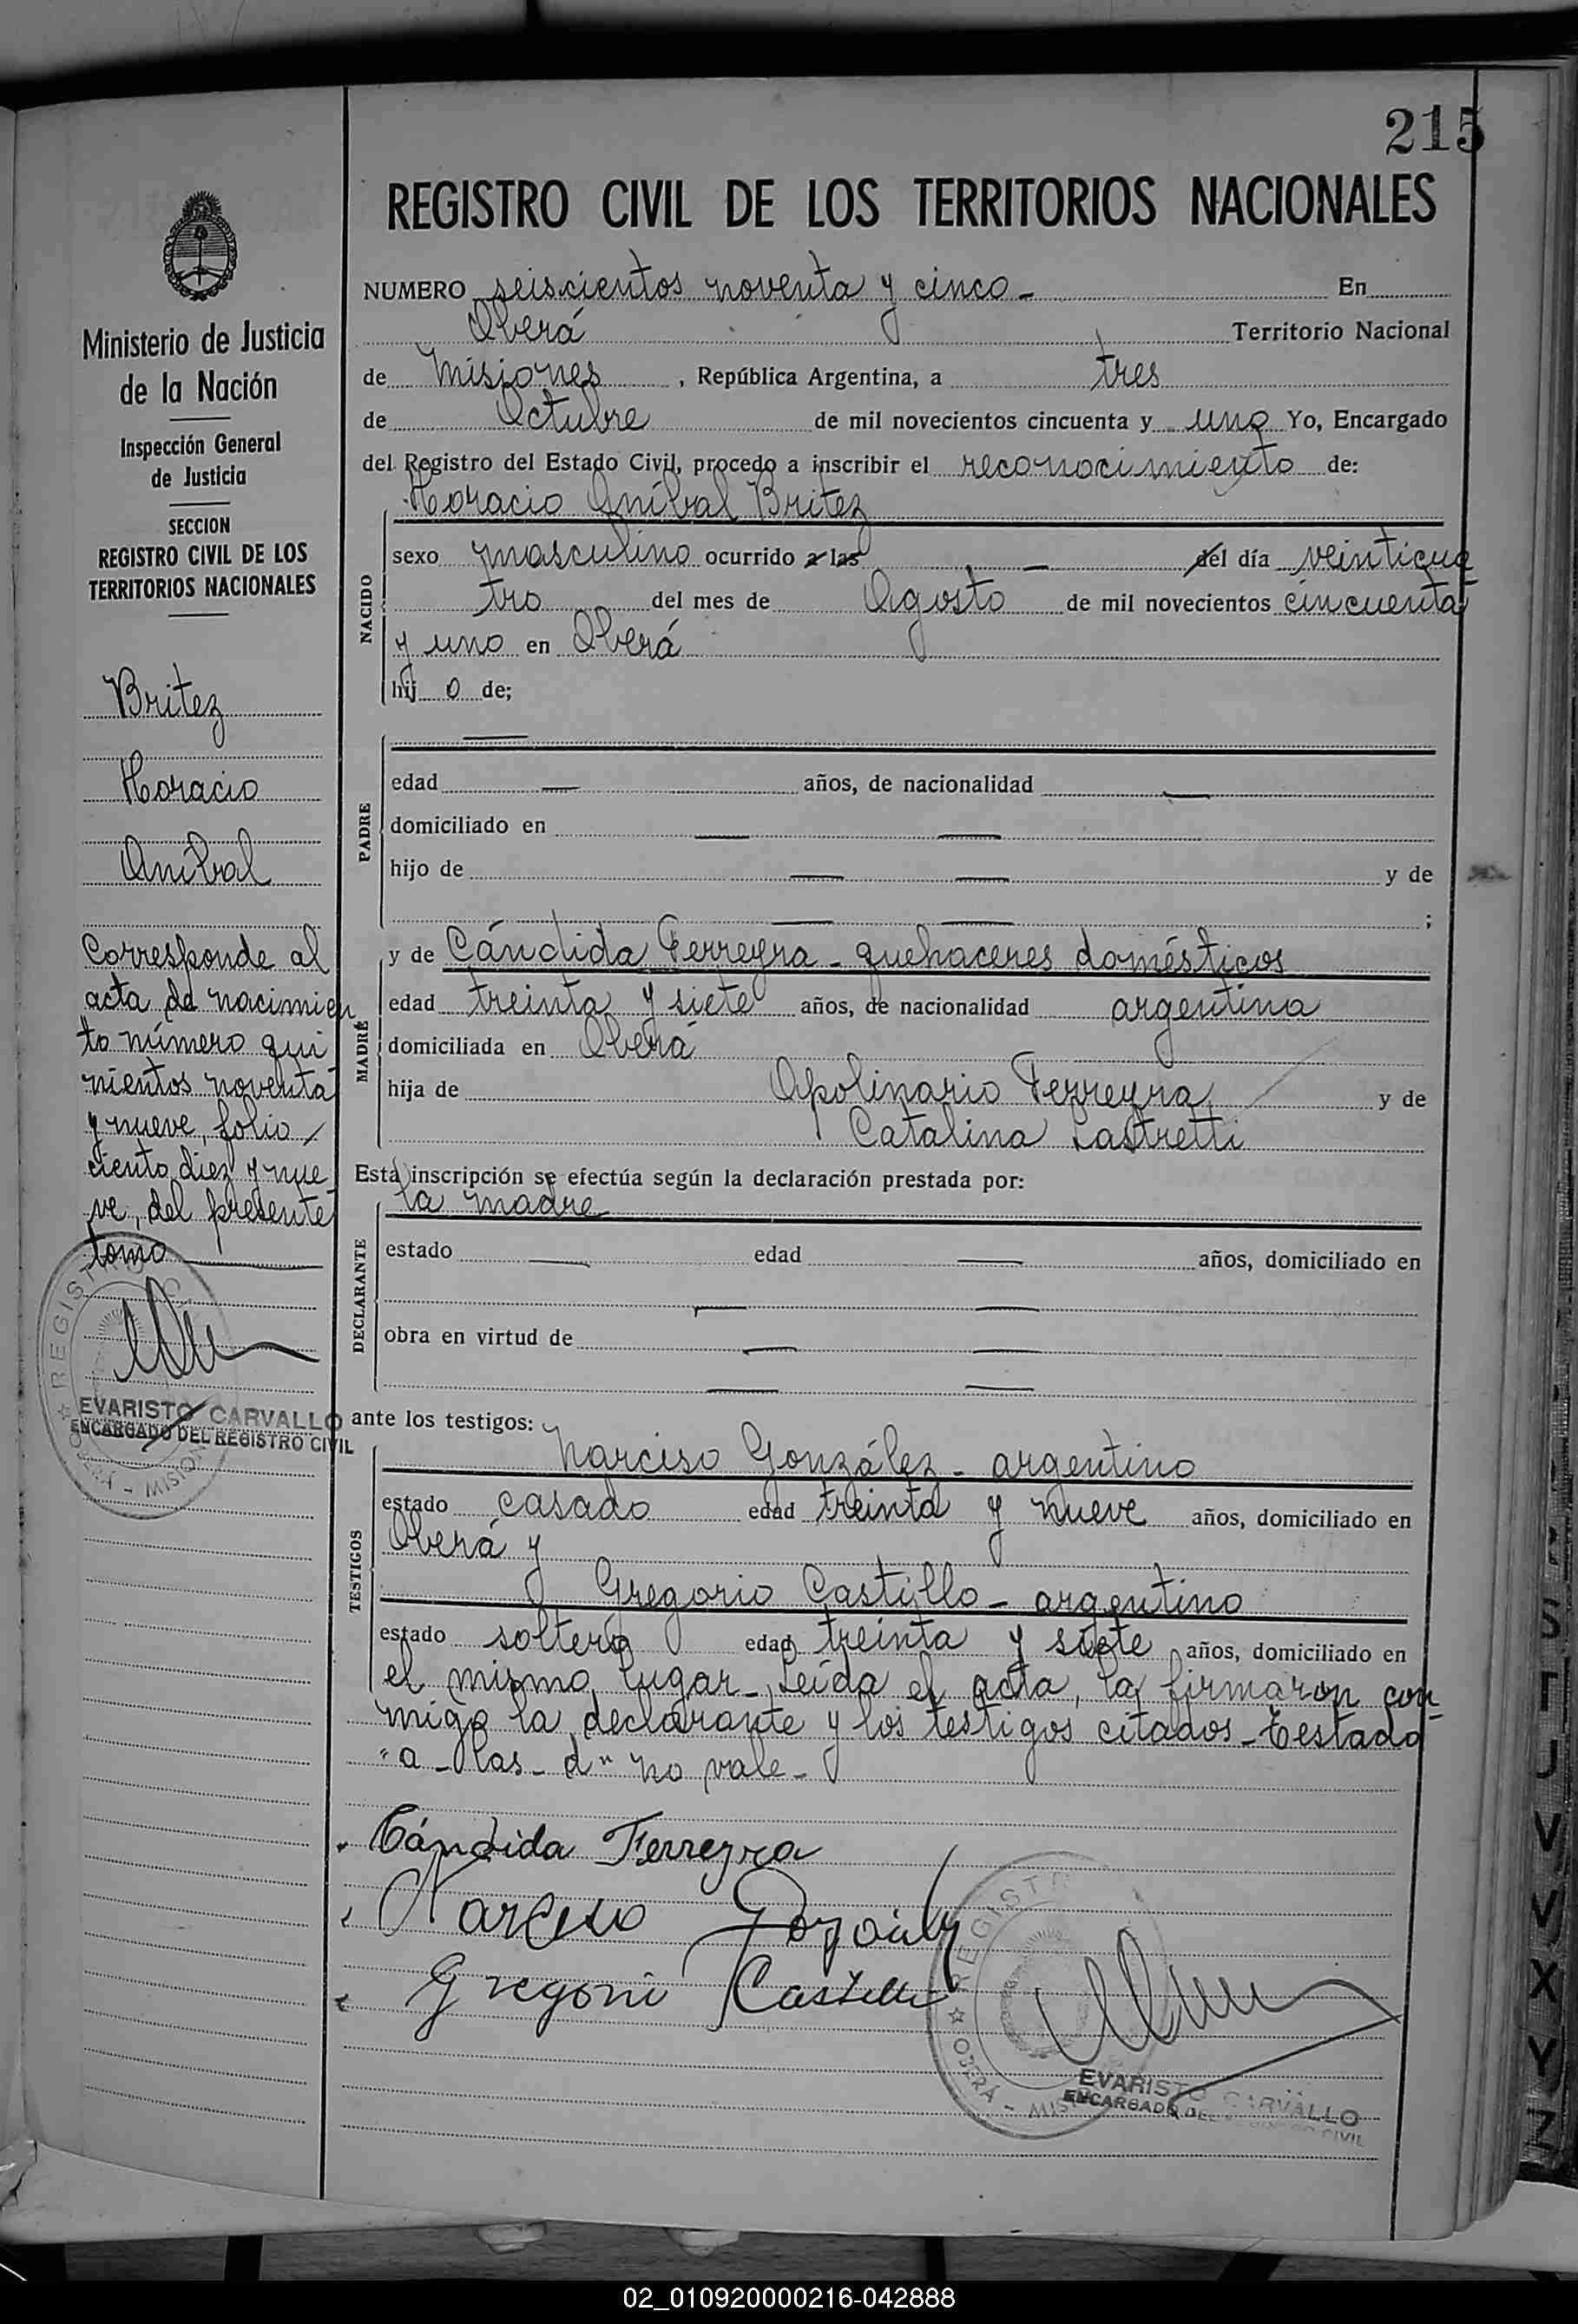 215
REGISTRO CIVIL DE LOS TERRITORIOS NACIONALES
NUMERO seiscientos noventa y cinco - En
Oberá Territorio Nacional
de Misiones, República Argentina, a tres
de Octubre de mil novecientos cincuenta y uno Yo, Encargado
del Registro del Estado Civil, procedo a inscribir el reconocimiento de:
Horacio Aníbal Britez
NACIDO
sexo masculino ocurrido a las - del día veinticua
tro del mes de Agosto de mil novecientos cincuenta
y uno en Oberá
hij o de;
PADRE
edad — años, de nacionalidad —
domiciliado en — —
hijo de — — y de
— — ;
MADRE
y de Cándida Ferreyra - quehaceres domésticos
edad treinta y siete años, de nacionalidad argentina
domiciliada en Oberá
hija de Apolinario Ferreyra y de
Catalina Lastretti
Esta inscripción se efectúa según la declaración prestada por:
la madre
DECLARANTE
estado — edad — años, domiciliado en
— —
obra en virtud de — —
— —
ante los testigos:
TESTIGOS
Narciso González - argentino
estado casado edad treinta y nueve años, domiciliado en
Oberá y
Gregorio Castillo - argentino
estado soltero edad treinta y siete años, domiciliado en
el mismo lugar - Leída el acta, la firmaron con
migo la declarante y los testigos citados - Testado
"a - las - d" no vale -
Cándida Ferreyra
Narciso
Castillo
REGISTRO
OBERÁ - MIS
EVARISTO CARVALLO
ENCARGADO DEL REGISTRO CIVIL
Ministerio de Justicia
de la Nación
Inspección General
de Justicia
SECCION
REGISTRO CIVIL DE LOS
TERRITORIOS NACIONALES
Britez
Horacio
Aníbal
Corresponde al
acta de nacimien
to número qui
nientos noventa
y nueve, folio
ciento diez y nue
ve, del presente
tomo
REGISTRO
OBERÁ - MISION
EVARISTO CARVALLO
ENCARGADO DEL REGISTRO CIVIL
S
T
J
V
V
X
Y
Z
02_010920000216-042888